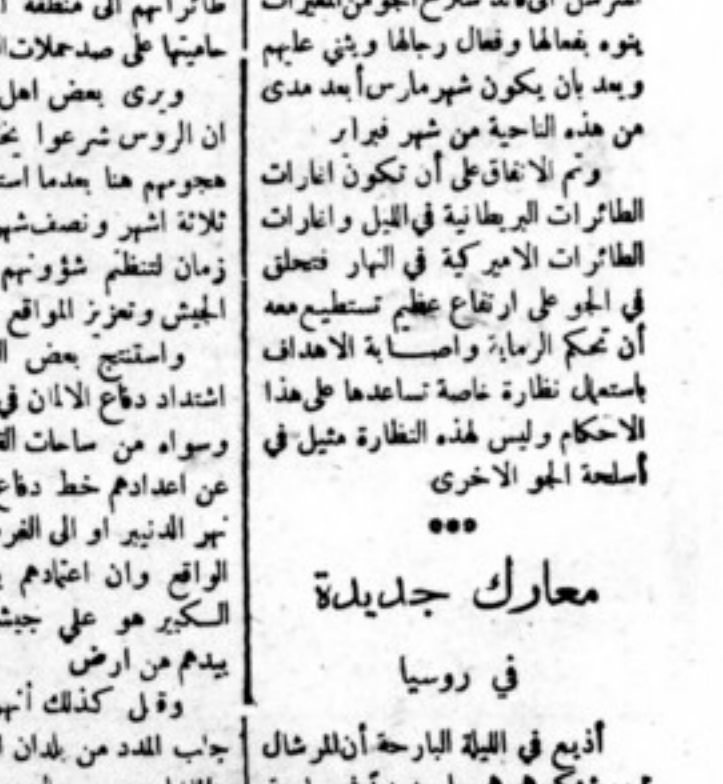 ينوه بفعالها وفعال رجالها ويثني عليهم
ويعد بان يكون شهر مارس أبعد مدى
من هذه الناحية من شهر فبراير
وتم الاتفاق على أن تكون اغارات
الطائرات البريطانية في الليل واغارات
الطائرات الاميركية في النهار فتحلق
في الجو على ارتفاع عظيم تستطيع معه
أن تحكم الرماية واصابة الاهداف
باستعمال نظارة خاصة تساعدها على هذا
الاحكام وليس لهذه النظارة مثيل في
أسلحة الجو الاخرى
***
معارك جديدة
في روسيا
أذيع في الليلة البارحة أن المرشال
طائراتهم الى منطقة
حاميتها على صد حملات
ويرى بعض اهل
ان الروس شرعوا
هجومهم هنا بعدما
ثلاثة اشهر ونصف شهر
زمان لتنظيم شؤونهم
الجيش وتعزيز المواقع
واستنتج بعض
اشتداد دفاع الالمان في
وسواه من ساحات
عن اعدادهم خط دفاع
نهر الدنيبر او الى
الواقع وان اعتمادهم
الكبير هو على
بيدهم من ارض
وقيل كذلك
جلب المدد من بلدان